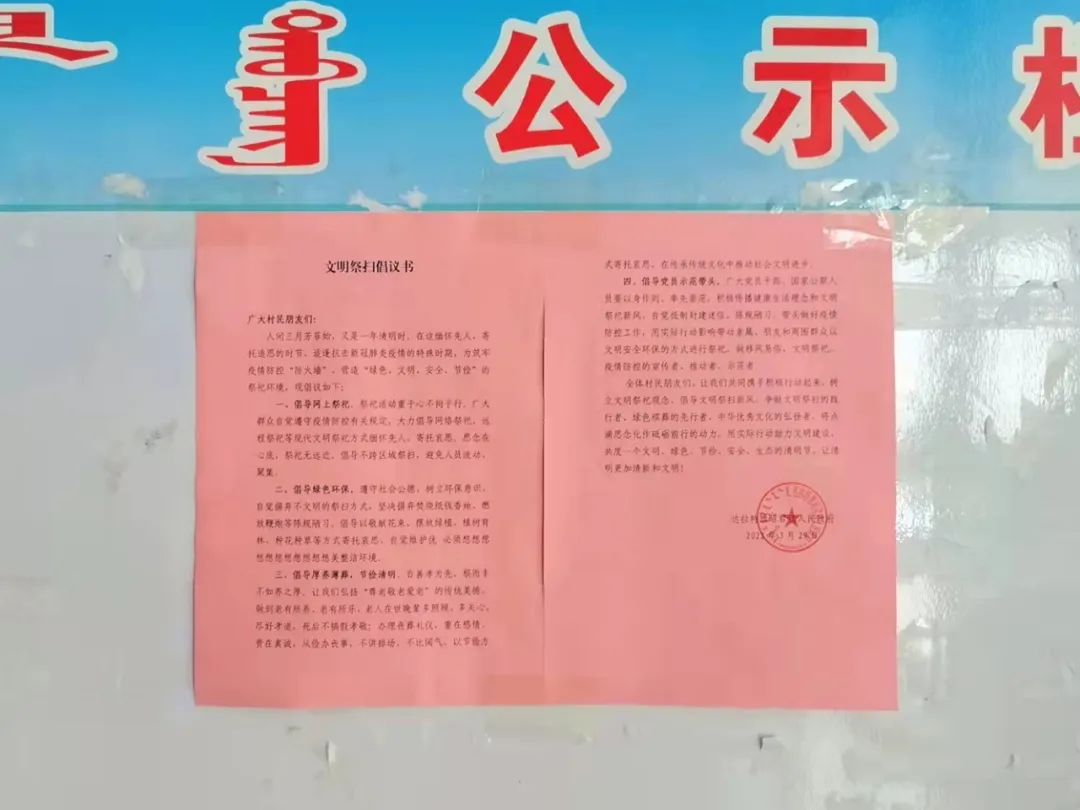 公示栏
文明祭扫倡议书
广大村民朋友们：
人间三月芳菲始，又是一年清明时。在这缅怀先人、寄
托追思的时节，适逢抗击新冠肺炎疫情的特殊时期，为筑牢
疫情防控“防火墙”，营造“绿色、文明、安全、节俭”的
祭祀环境，现倡议如下：
一、倡导网上祭祀。祭祀活动重于心不拘于行。广大
群众自觉遵守疫情防控有关规定，大力倡导网络祭祀、远
程祭祀等现代文明祭祀方式缅怀先人、寄托哀思。思念在
心底，祭祀无远近，倡导不跨区域祭扫，避免人员流动、
聚集。
二、倡导绿色环保。遵守社会公德，树立环保意识，
自觉摒弃不文明的祭扫方式，坚决摒弃焚烧纸钱香烛、燃
放鞭炮等陈规陋习。倡导以敬献花束、摆放绿植、植树育
林、种花种草等方式寄托哀思，自觉维护优 必须想想想
想想想想想想想想美整洁环境。
三、倡导厚养薄葬，节俭清明。百善孝为先，祭而丰
不如养之厚。让我们弘扬“尊老敬老爱老”的传统美德，
做到老有所养、老有所乐，老人在世晚辈多照顾、多关心、
尽好孝道，死后不搞假孝敬；办理丧葬礼仪，重在感情，
贵在真诚，从俭办丧事，不讲排场，不比阔气，以节俭方
式寄托哀思，在传承传统文化中推动社会文明进步。
四、倡导党员示范带头。广大党员干部、国家公职人
员要以身作则、率先垂范，积极传播健康生活理念和文明
祭祀新风，自觉抵制封建迷信、陈规陋习，带头做好疫情
防控工作，用实际行动影响带动亲属、朋友和周围群众以
文明安全环保的方式进行祭祀，做移风易俗、文明祭祀、
疫情防控的宣传者、推动者、示范者
全体村民朋友们，让我们共同携手积极行动起来，树
立文明祭祀观念，倡导文明祭扫新风，争做文明祭扫的践
行者、绿色殡葬的先行者、中华优秀文化的弘扬者，将点
滴思念化作砥砺前行的动力，用实际行动助力文明建设，
共度一个文明、绿色、节俭、安全、生态的清明节，让清
明更加清新和文明！
达拉特旗昭君镇人民政府
2022年3月29日